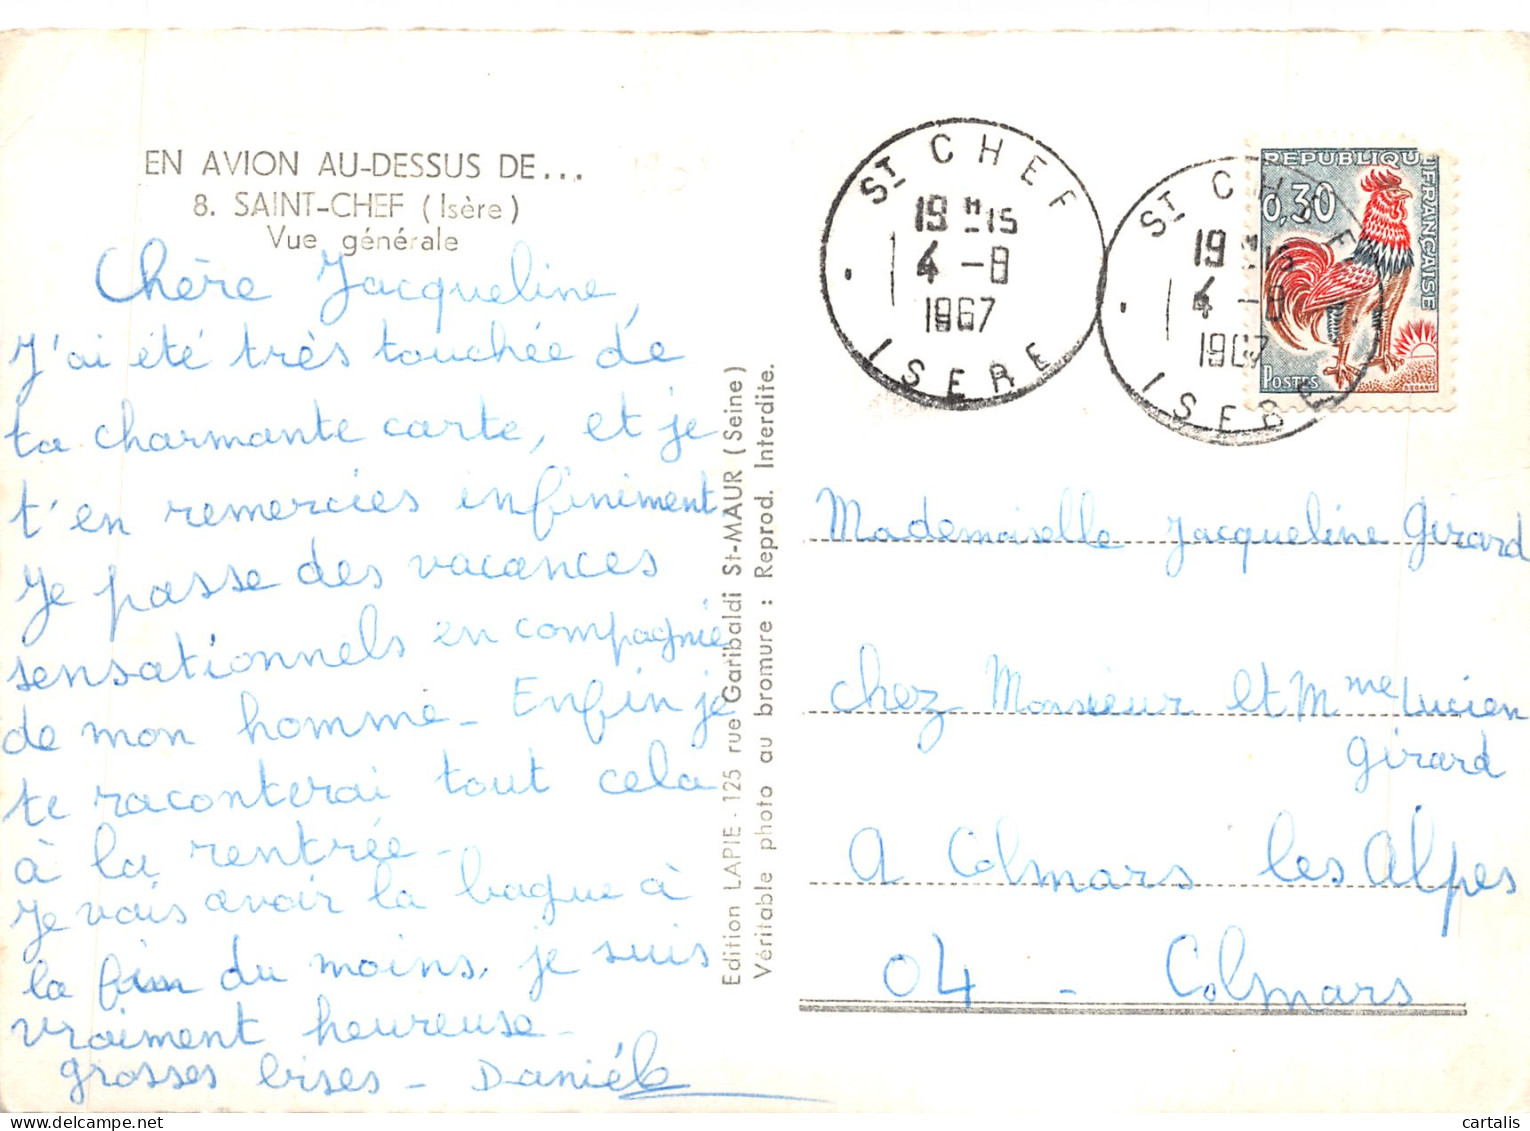 EN AVION AU-DESSUS DE...
8. SAINT-CHEF (Isère)
Vue générale
Chère Jacqueline,
J'ai été très touchée de
ta charmante carte, et je
t'en remercies infiniment
Je passe des vacances
sensationnels en compagnie
de mon homme - Enfin je
te raconterai tout cela
à la rentrée -
Je vais avoir la bague à
la fin du moins, je suis
vraiment heureuse -
grosses bises - Danièle
Edition LAPIE - 125 rue Garibaldi St-MAUR (Seine)
Véritable photo au bromure : Reprod. Interdite.
ST CHEF
19 H 15
4 - 8
1967
ISERE
ST CHEF
19 H 15
4 - 8
1967
ISERE
REPUBLIQUE FRANÇAISE
0,30
POSTES
Mademoiselle Jacqueline Girard
chez Monsieur et Mme Lucien
Girard
A Colmars les Alpes
04 - Colmars
cartalis